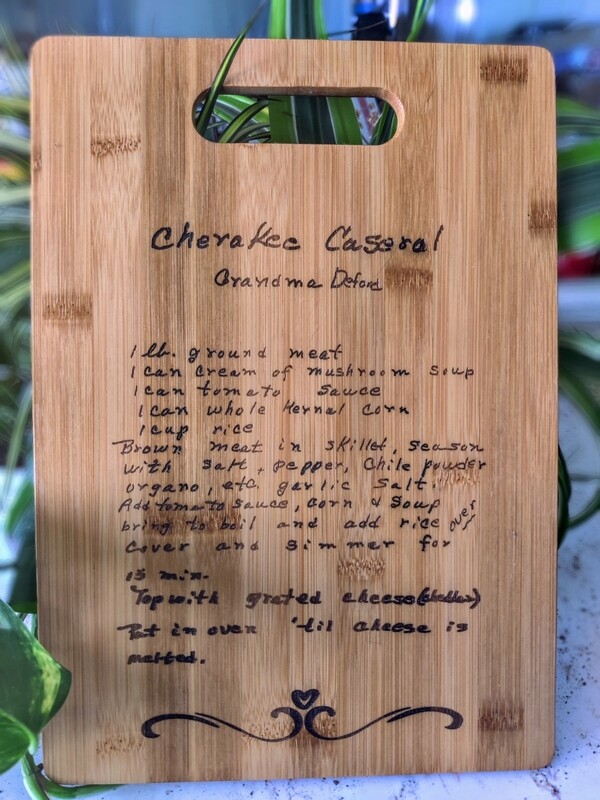 Cherakee Caseral
Grandma Deford
1 lb. ground meat
1 can cream of mushroom soup
1 can tomato sauce
1 can whole kernal corn
1 cup rice
Brown meat in skillet, season
with salt, pepper, chile powder
organo, etc, garlic salt.
Add tomato sauce, corn & soup
bring to boil and add rice over
Cover and simmer for
15 min.
Top with grated cheese (cheddar)
Put in oven 'til cheese is
melted.